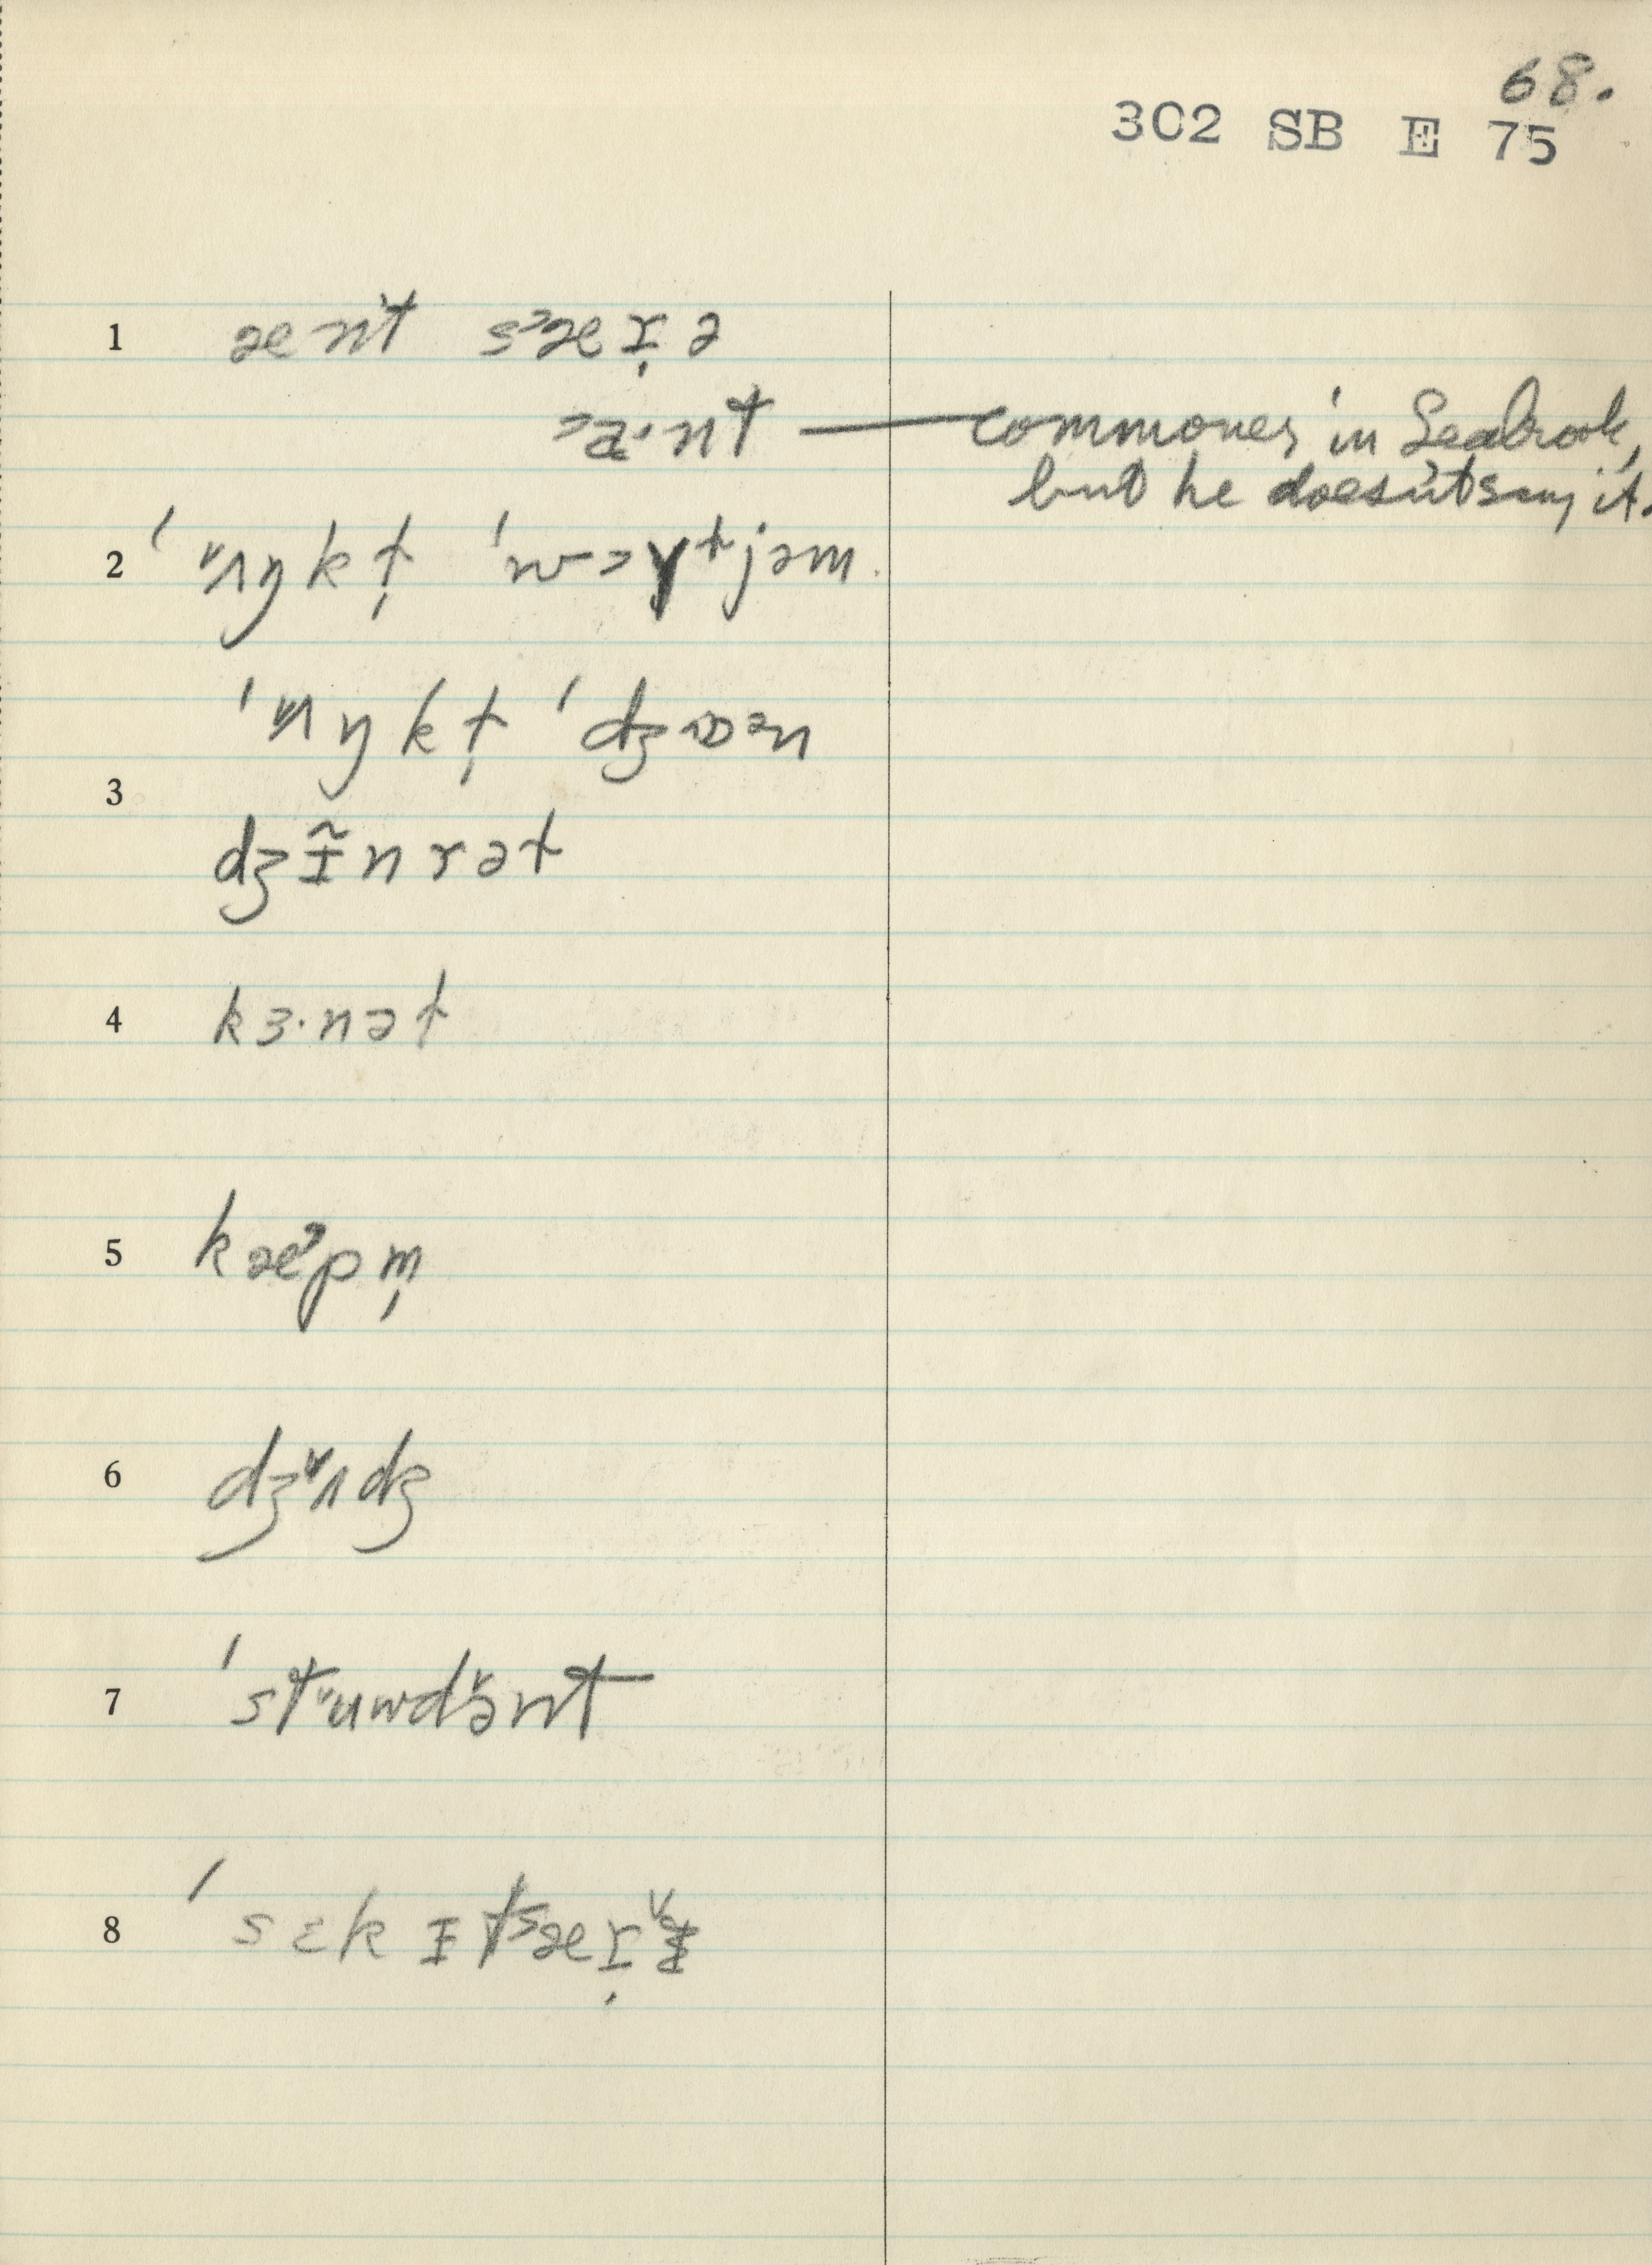 68.
302 SB E 75
1 ænt s˃æɪ̨ə
˃a·nt — commoner in Seabrook,
but he doesn't say it.
2 ˈ˅ʌŋkt̩ ˈwɔɣtjəm.
ˈ˅ʌŋkt̩ ˈdʒɒən
3
dʒɪ̃nrət
4 kɜ·nət
5 kæ˃pm̩
6 dʒ˅ʌdʒ
7 ˈst˅uwdə̌nt
8 ˈsɛkɪt˃æɪ̨